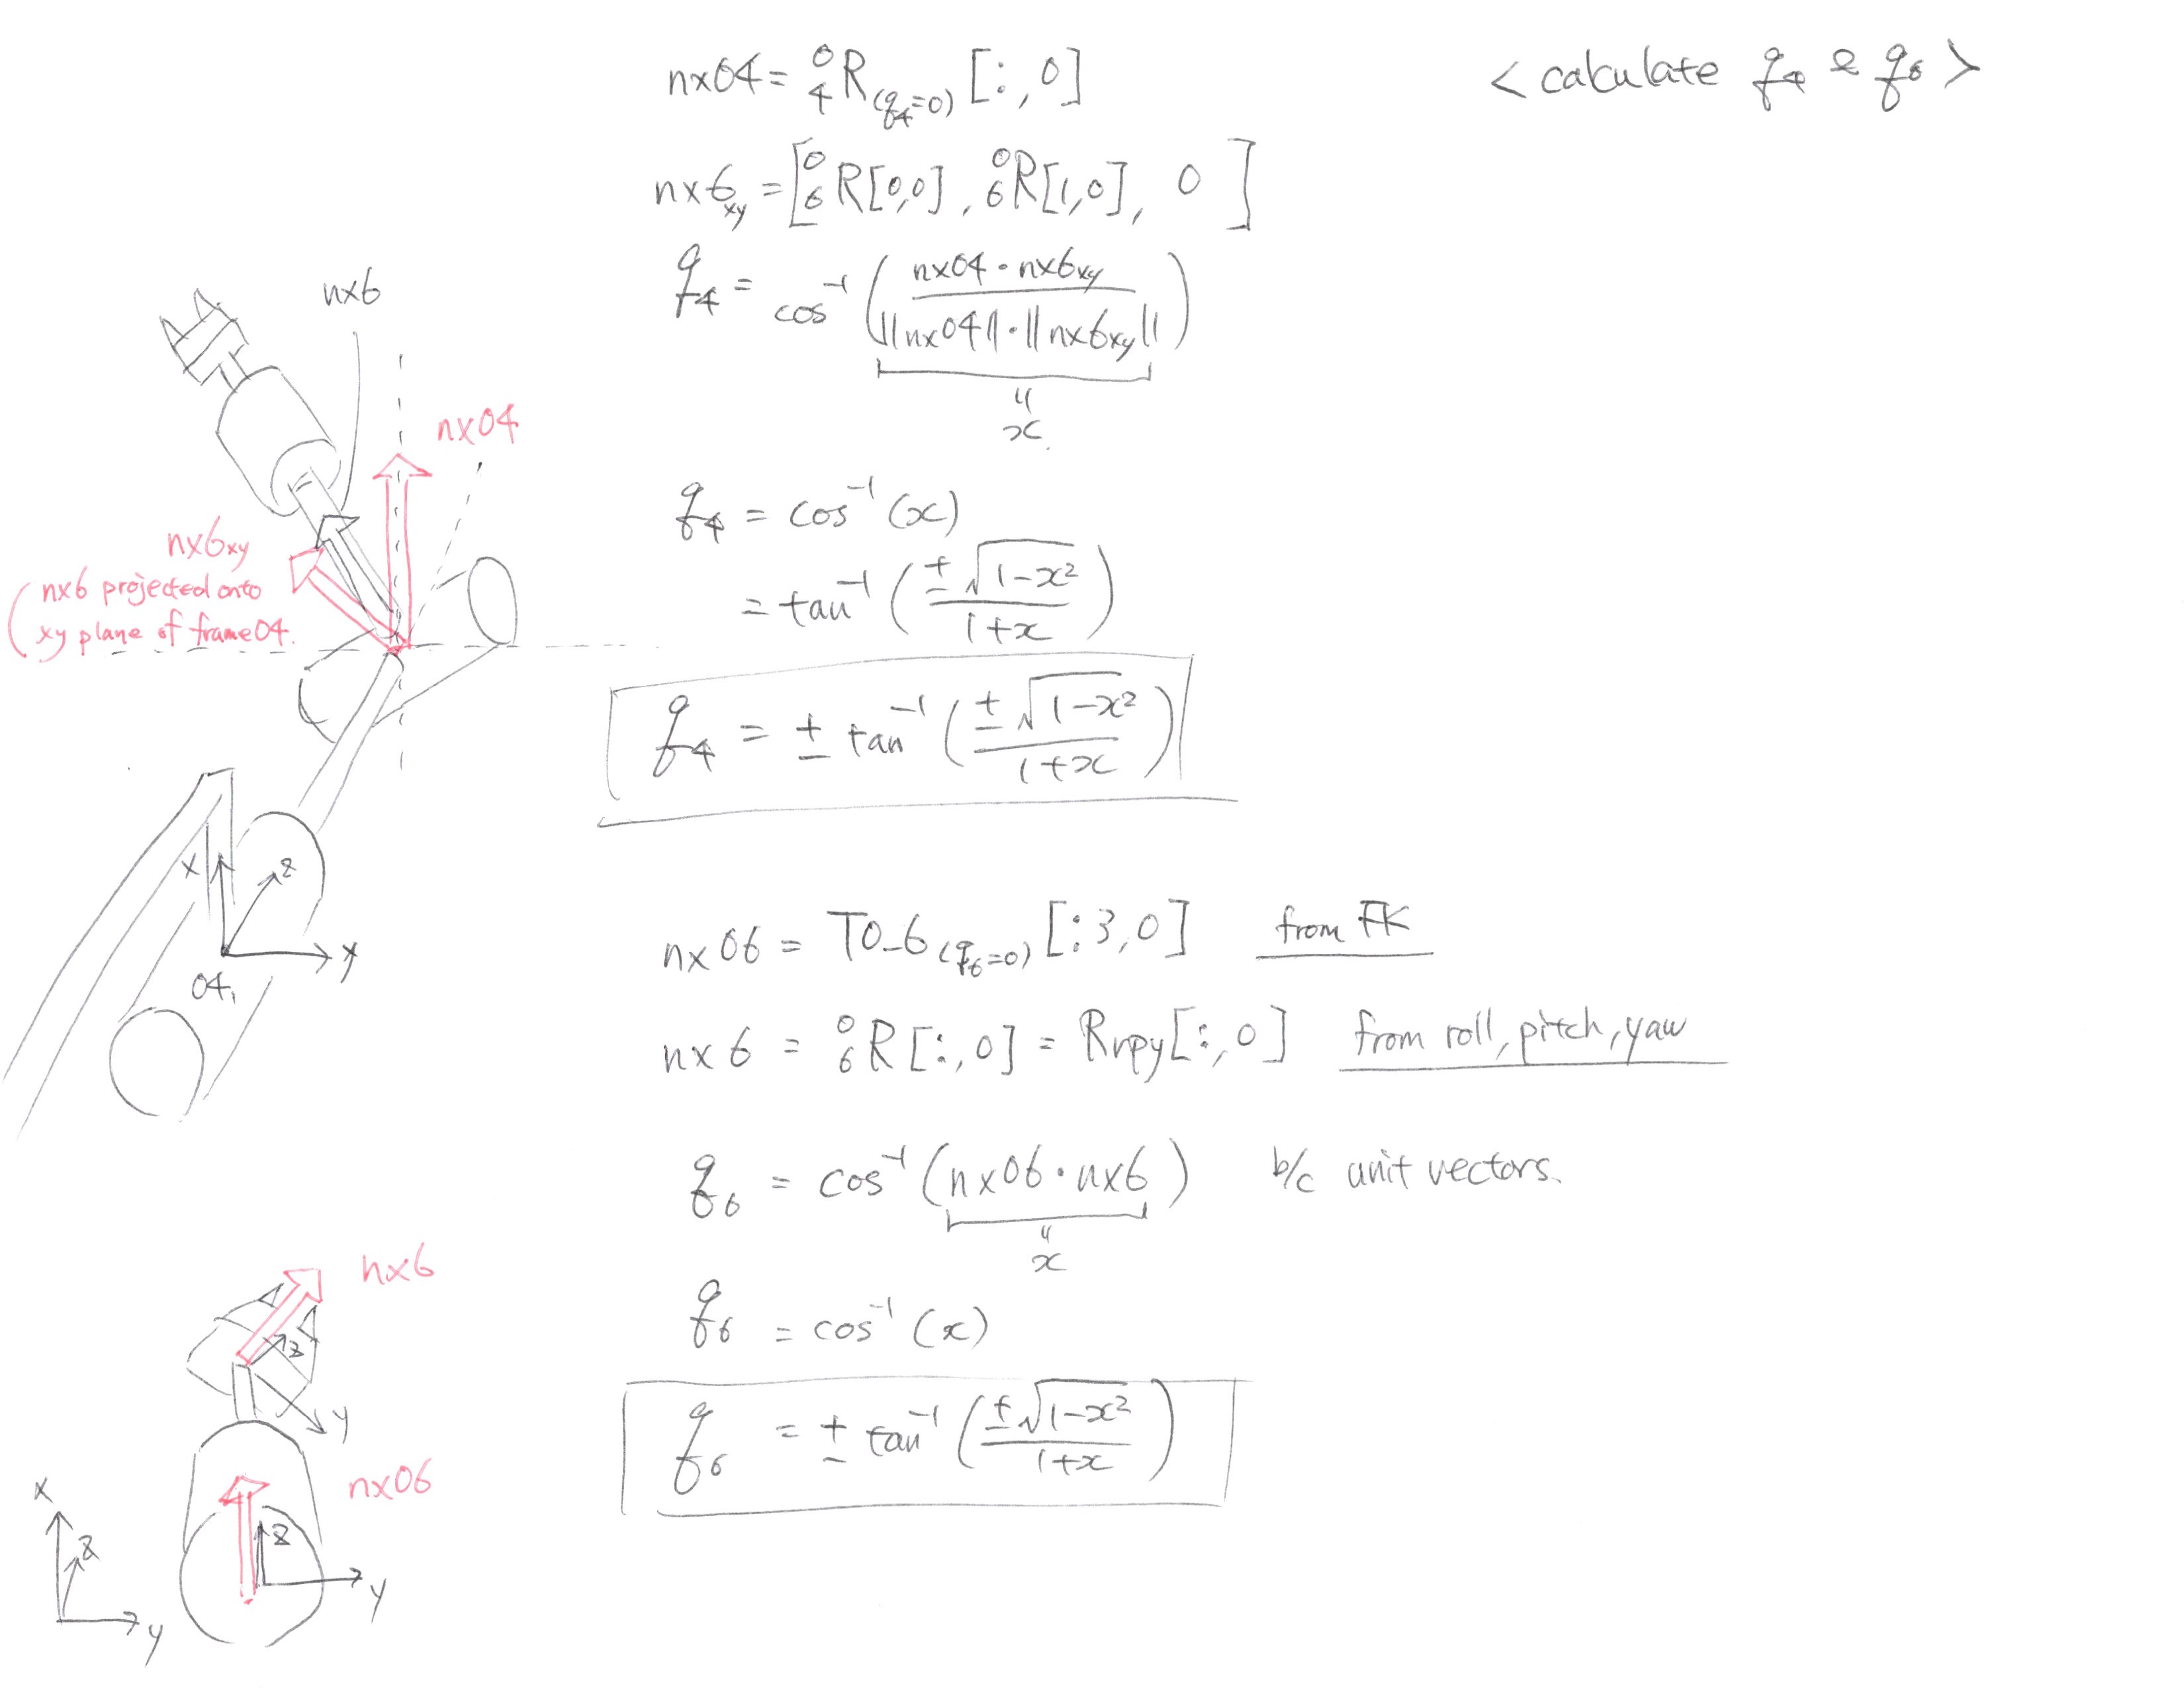 < calculate q4 & q6 >
nx04 = ⁰₄R(q4=0) [:, 0]
nx6xy = [⁰₆R[0,0], ⁰₆R[1,0], 0 ]
q4 = cos⁻¹ ( nx04 · nx6xy / ||nx04|| · ||nx6xy|| )
"
x
q4 = cos⁻¹ (x)
= tan⁻¹ ( ±√(1-x²) / 1+x )
q4 = ± tan⁻¹ ( ±√(1-x²) / 1+x )
nx6
nx04
nx6xy
( nx6 projected onto
xy plane of frame04.
x
z
y
04,
nx06 = T0_6(q6=0) [:3, 0] from FK
nx6 = ⁰₆R[:, 0] = Rrpy[:, 0] from roll, pitch, yaw
q6 = cos⁻¹ (nx06 · nx6) b/c unit vectors.
"
x
q6 = cos⁻¹ (x)
q6 = ± tan⁻¹ ( ±√(1-x²) / 1+x )
nx6
z
y
nx06
x
z
y
z
y